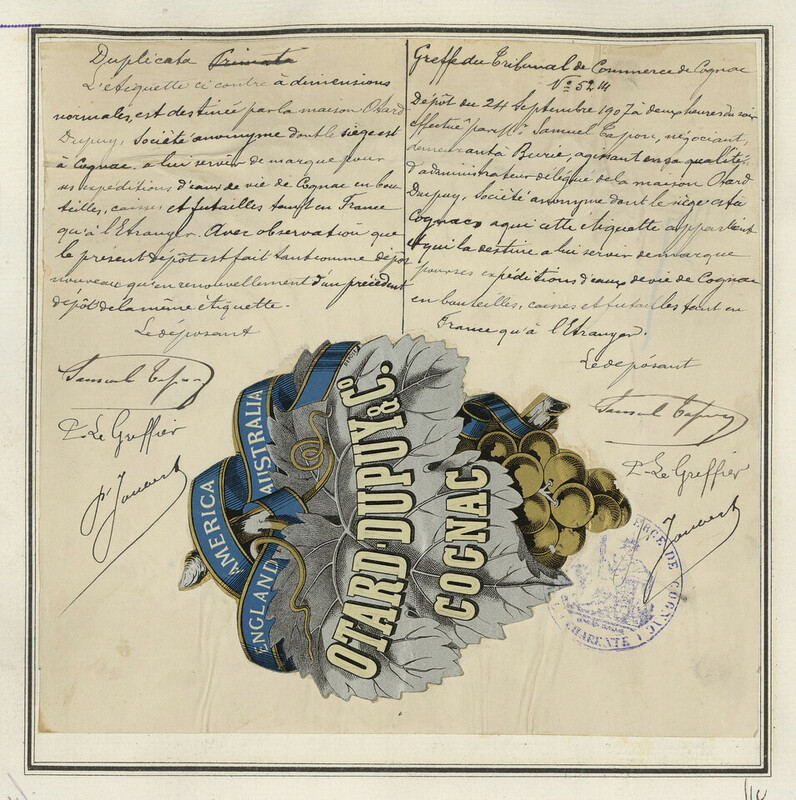 Duplicata Primata
L'étiquette ci contre à dimensions
normales, est destinée par la maison Otard
Dupuy, Société anonyme dont le siège est
à Cognac, a lui servir de marque pour
ses expéditions d'eaux de vie de Cognac en bou
teilles, caisses et futailles tant en France
qu'à l'Etranger. Avec observation que
le présent dépôt est fait tant comme dépôt
nouveau qu'en renouvellement d'un précédent
dépôt de la même étiquette.
Le déposant
Samuel
P. Le Greffier
Greffe du Tribunal de Commerce de Cognac
No 52
Dépôt du 24 Septembre 1907 à deux heures du soir
effectué par Mr Samuel négociant,
demeurant à Burie, agissant en sa qualité
d'administrateur délégué de la maison Otard
Dupuy, Société anonyme dont le siège est à
Cognac, a qui cette étiquette appartient
et qui la destine a lui servir de marque
pour ses expéditions d'eaux de vie de Cognac
en bouteilles, caisses et futailles tant en
France qu'à l'Etranger.
Le déposant
Samuel
P. Le Greffier
AUSTRALIA
AMERICA
ENGLAND
OTARD-DUPUY & Co.
COGNAC
DE COGNAC
CHARENTE